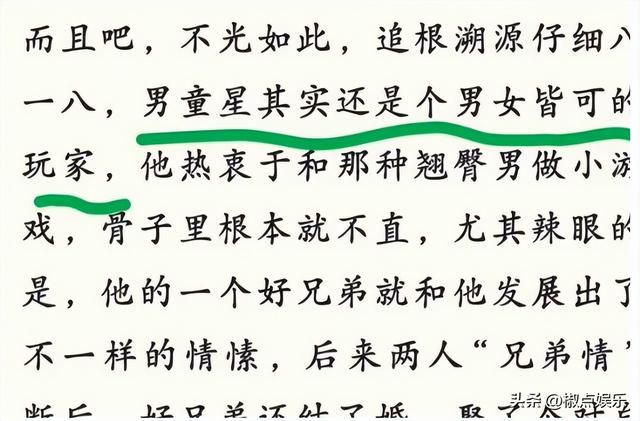 而且吧，不光如此，追根溯源仔细八
一八，男童星其实还是个男女皆可的
玩家，他热衷于和那种翘臀男做小游
戏，骨子里根本就不直，尤其辣眼的
是，他的一个好兄弟就和他发展出了
不一样的情愫，后来两人“兄弟情”
断后，好兄弟还结了婚，娶了个
头条 @椒点娱乐